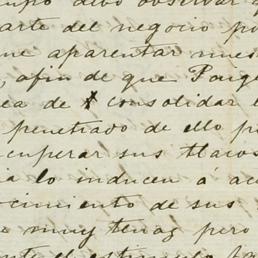 debo observar
arte del negocio po
me aparentar mues
, afin de que Paige
ea de consolidar l
penetrado de ello p
cuperar sus tlacos
ia lo inducen á ac
ocimiento de sus
e muy tenaz pero